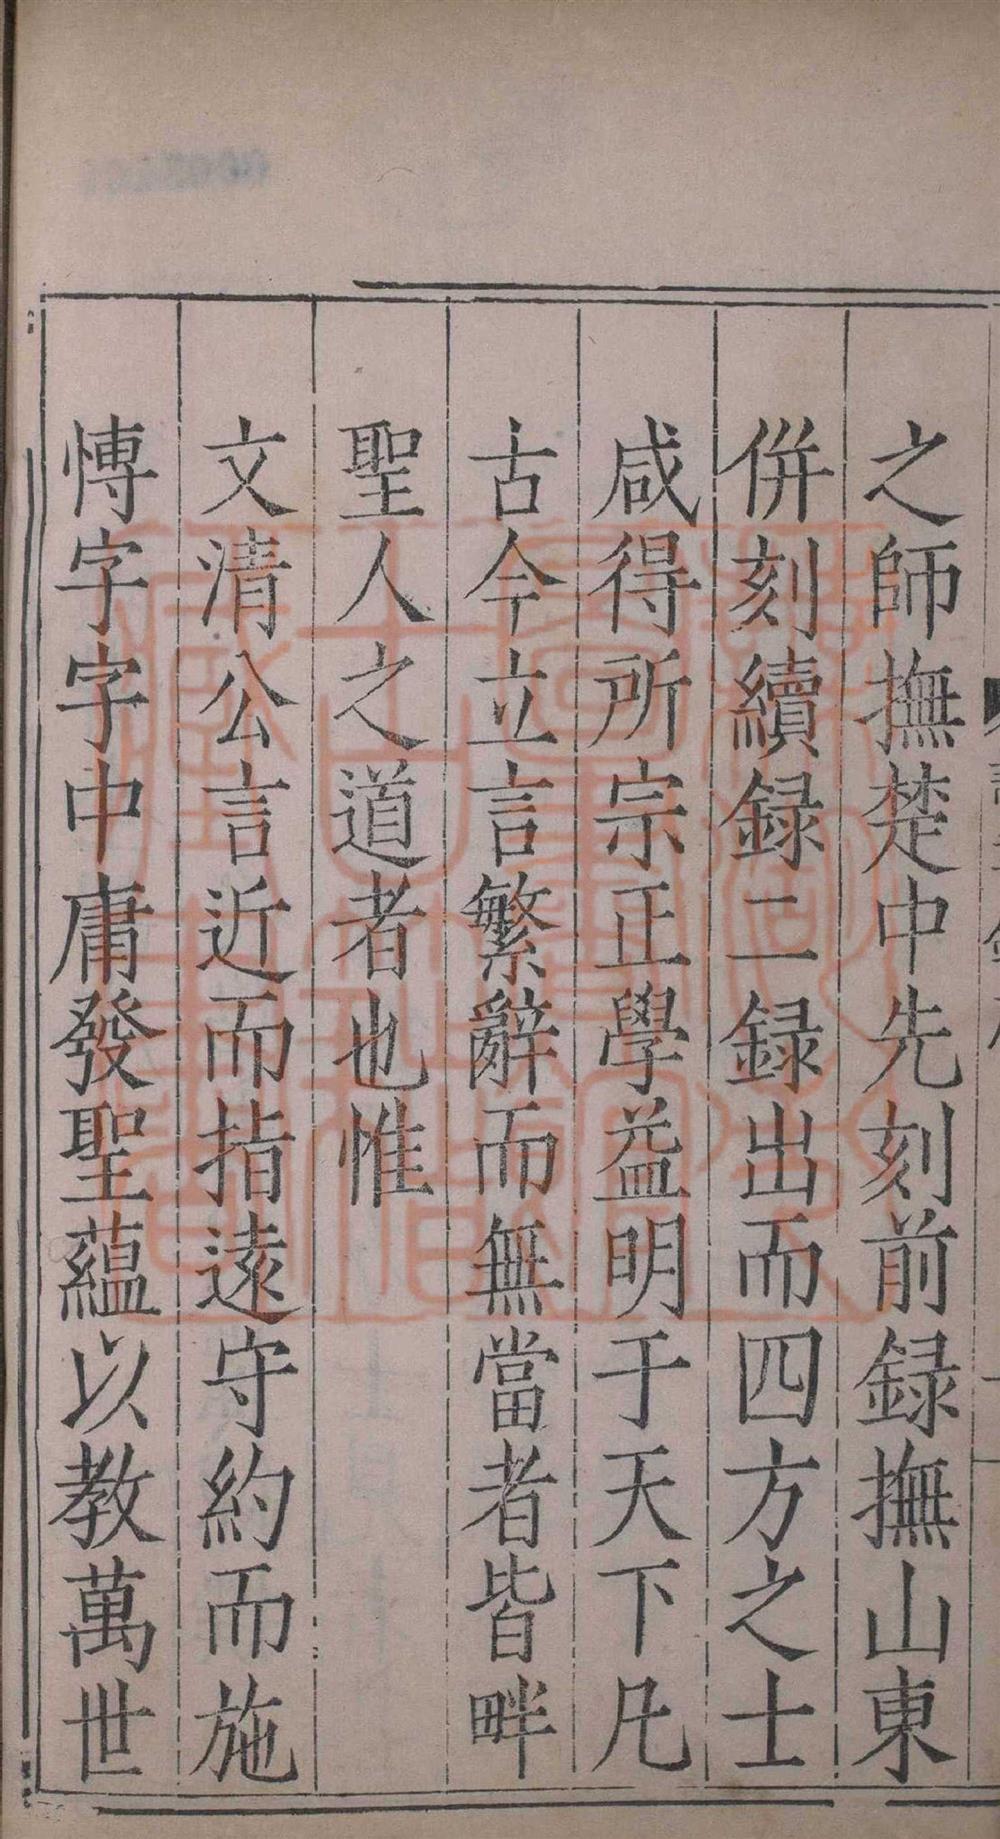 之師撫楚中先刻前録撫山東
併刻續録二録出而四方之士
咸得所宗正學益明于天下凡
古今立言繁辭而無當者皆畔
聖人之道者也惟
文清公言近而指遠守約而施
慱字字中庸發聖蘊以教萬世